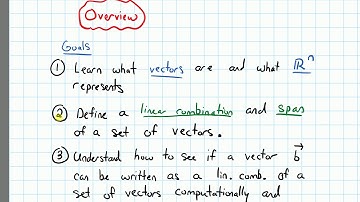 Overview
Goals
① Learn what vectors are and what ℝⁿ
represents
② Define a linear combination and span
of a set of vectors.
③ Understand how to see if a vector b⃗
can be written as a lin. comb. of a
set of vectors computationally and